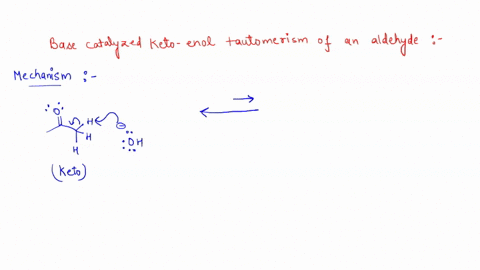 Base catalyzed Keto-enol tautomerism of an aldehyde :-
Mechanism :-
O
H
H
H
⊖
OH
(Keto)